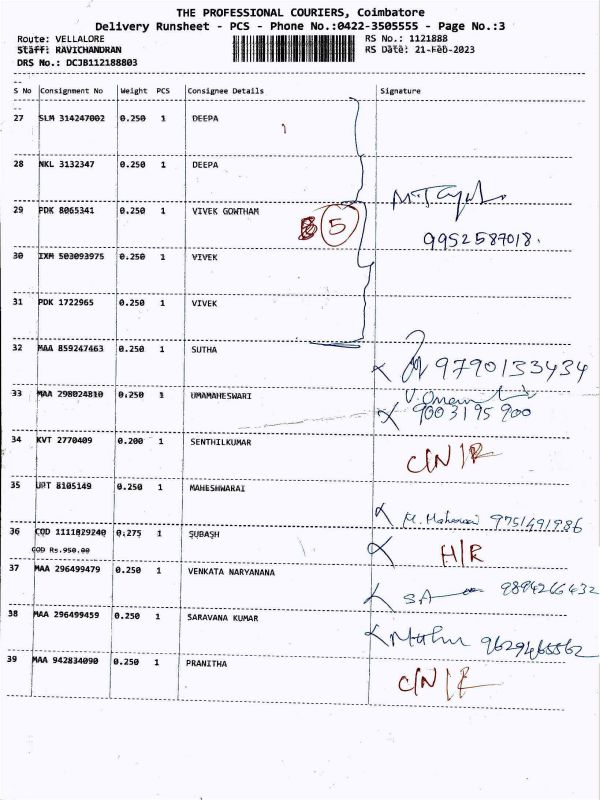 THE PROFESSIONAL COURIERS, Coimbatore
Delivery Runsheet - PCS - Phone No.:0422-3505555 - Page No.:3
Route: VELLALORE RS No.: 1121888
Staff: RAVICHANDRAN RS Date: 21-Feb-2023
DRS No.: DCJB112188803
S No Consignment No Weight PCS Consignee Details Signature
27 SLM 314247002 0.250 1 DEEPA
28 NKL 3132347 0.250 1 DEEPA
29 PDK 8065341 0.250 1 VIVEK GOWTHAM 5
9952587018.
30 IXM 503093975 0.250 1 VIVEK
31 PDK 1722965 0.250 1 VIVEK
32 MAA 859247463 0.250 1 SUTHA 9790133434
33 MAA 298024810 0.250 1 UMAMAHESWARI
9003195900
34 KVT 2770409 0.200 1 SENTHILKUMAR C/N/R
35 UPT 8105149 0.250 1 MAHESHWARAI
9751491986
36 COD 1111829240 0.275 1 SUBASH
COD Rs.950.00 H/R
37 MAA 296499479 0.250 1 VENKATA NARYANANA
9894266432
38 MAA 296499459 0.250 1 SARAVANA KUMAR
9629465562
39 MAA 942834090 0.250 1 PRANITHA C/N/R